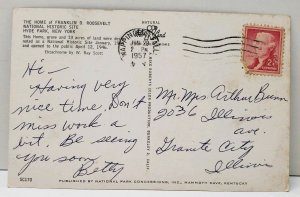 THE HOME of FRANKLIN D. ROOSEVELT
NATIONAL HISTORIC SITE
HYDE PARK, NEW YORK
This Home, grave and 33 acres of land were
nated as a National Historic Site January
and opened to the public April 12, 1946.
Ektachrome by W. Ray Scott
NATURAL
1957
2¢
Hi-
Having very
nice time. Don't
miss work a
bit. Be seeing
you soon
Betty
Mr. Mrs Arthur
2036 Illinois
ave.
Granite City
Illinois
SC170
PUBLISHED BY NATIONAL PARK CONCESSIONS, INC., MAMMOTH CAVE, KENTUCKY